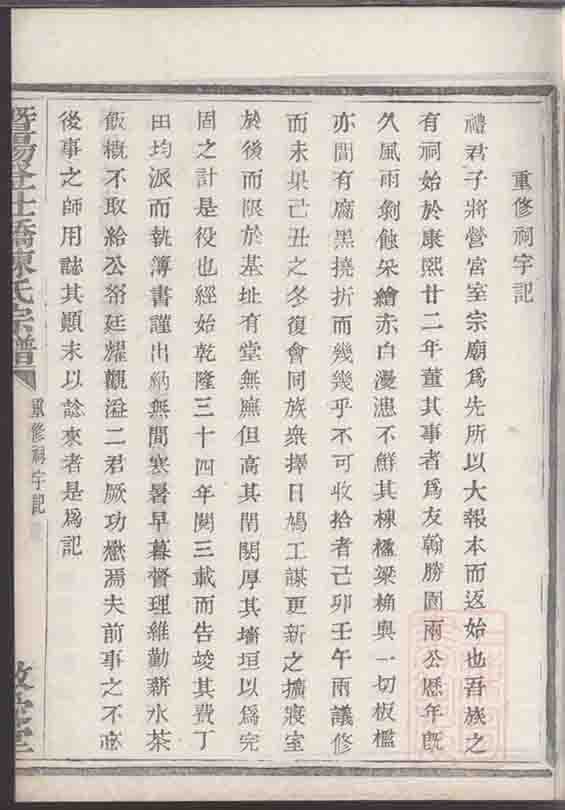 重修祠宇記
禮君子將營宮室宗廟爲先所以大報本而返始也吾族之
有祠始於康熙廿二年董其事者爲友翰勝園兩公歷年旣
久風雨剝蝕朵繪赤白漫漶不鮮其棟楹梁桷與一切板檻
亦間有腐黑撓折而幾幾乎不可收拾者己卯壬午兩議修
而未果己丑之冬復會同族衆擇日鳩工謀更新之擴寢室
於後而限於基址有堂無廡但高其閈閎厚其墻垣以爲完
固之計是役也經始乾隆三十四年閱三載而告竣其費丁
田均派而執簿書謹出納無間寒暑早暮督理維勤薪水茶
飯槪不取給公帑廷耀觀溢二君厥功懋焉夫前事之不忘
後事之師用誌其顚末以諗來者是爲記
暨陽 仕橋陳氏宗譜
重修祠宇記